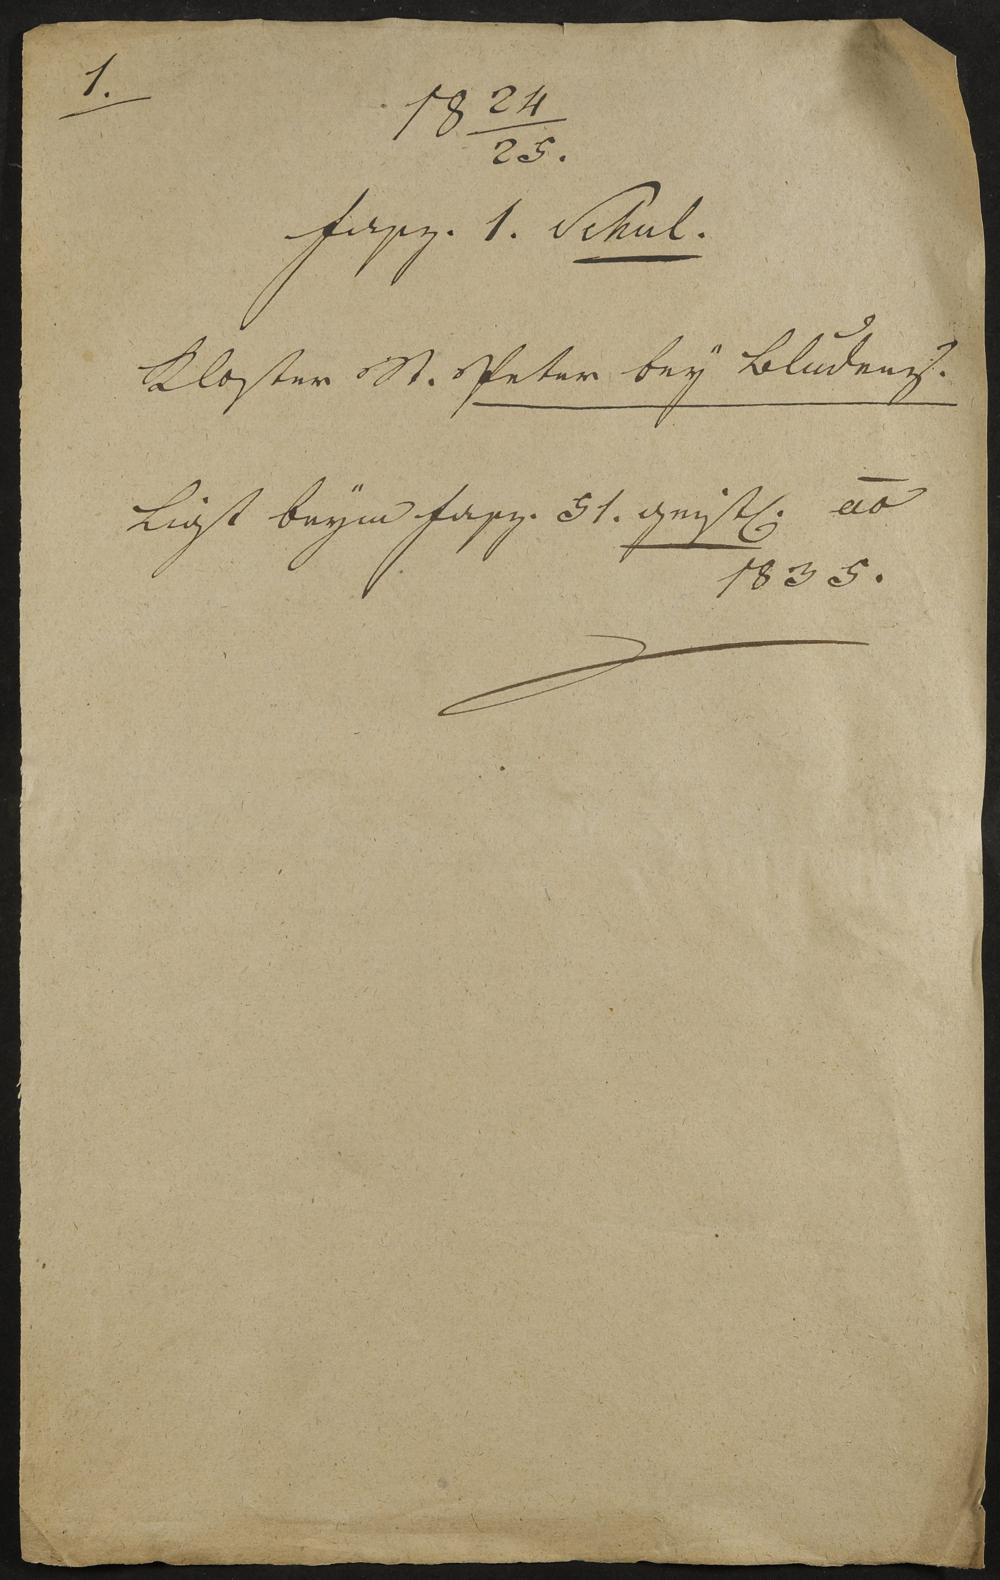 1.
18 24/25.
Fasz. 1. Schul.
Kloster St. Peter bey Bludenz.
Ligt beÿm Fasz. 51. geistl. ao
1835.